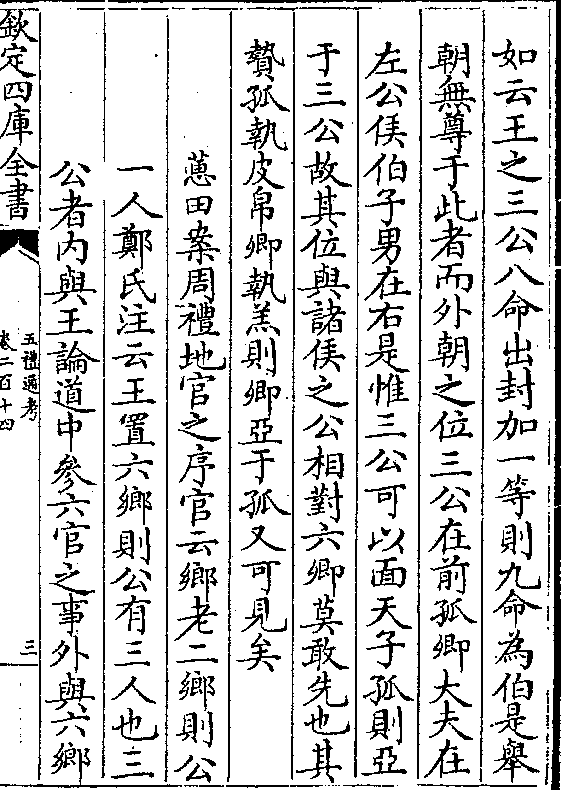 如云王之三公八命出封加一等則九命為伯是舉
朝無尊于此者而外朝之位三公在前孤卿大夫在
左公侯伯子男在右是惟三公可以面天子孤則亞
于三公故其位與諸侯之公相對六卿莫敢先也其
贄孤執皮帛卿執羔則卿亞于孤又可見矣
蕙田案周禮地官之序官云鄉老二鄉則公
一人鄭氏注云王置六鄉則公有三人也三
公者内與王論道中參六官之事外與六鄉
欽定四庫全書
五禮通考
卷二百十四
三